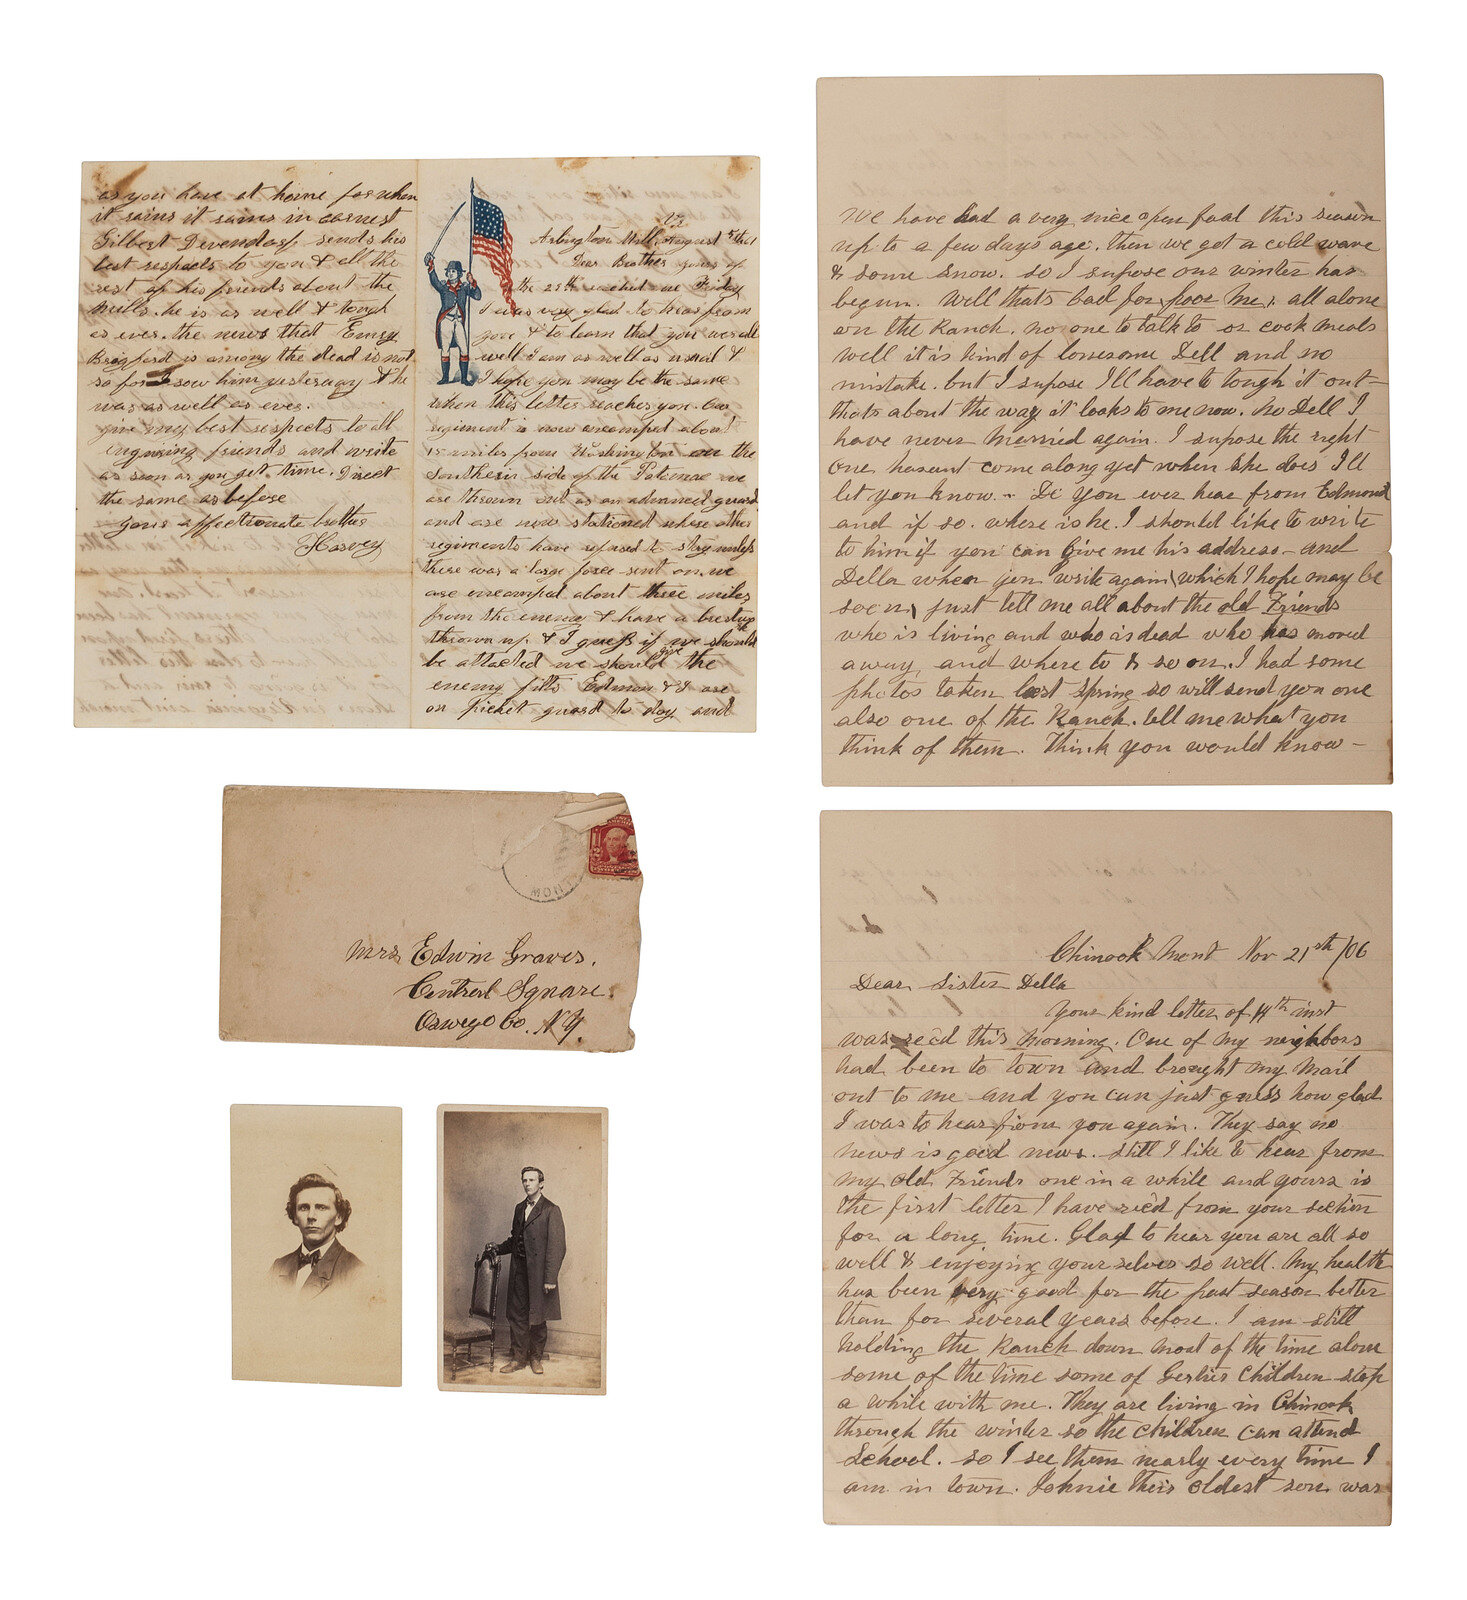 as you have at home for when
it rains it rains in earnest
Gilbert Devendorf sends his
best respects to you & all the
rest of his friends about the
mills. he is as well & tough
as ever. the news that Emry
is among the dead is not
so for I saw him yesterday & he
was as well as ever.
give my best respects to all
enquiring friends and write
as soon as you get time. Direct
the same as before
yours affectionate brother
Harvey
Va
Arlington Mill August
Dear Brother yours of
the 28th reached me Friday
I was very glad to hear from
you & to learn that you were all
well I am as well as usual &
I hope you may be the same
when this letter reaches you. Our
regiment is now encamped about
miles from Washington on the
Southern side of the Potomac we
are thrown out as an advanced guard
and are now stationed where other
regiments have refused to stay unless
there was a large force sent on. we
are encamped about three miles
from the enemy & have a brestwk
thrown up & I guess if we should
be attacted we should give the
enemy fitts Edmon & I are
on picket guard to day and
We have had a very nice open faal this season
up to a few days age. then we got a cold wave
& some snow. so I supose our winter has
begun. Well thats bad for poor me, all alone
on the Ranch. no one to talk to or cook meals
well it is kind of lonesome Dell and no
mistake. but I supose I'll have to tough it out-
thats about the way it looks to me now. No Dell I
have never Married again. I supose the right
one hasent come along yet when she does I'll
let you know. - Do you ever hear from Edmond
and if so. where is he. I should like to write
to him if you can give me his address - and
Della when you write again which I hope may be
soon, just tell me all about the old Friends
who is living and who is dead who has moved
away, and where to & so on. I had some
photos taken last spring so will send you one
also one of the Ranch. tell me what you
think of them. Think you would know -
MONT
Mrs Edwin Graves.
Central Square.
Oswego Co. N.Y.
Chinook Mont Nov 21st /06
Dear Sister Della
Your kind letter of 14th inst
was recd this morning. One of my neighbors
had been to town and brought my mail
out to me and you can just guess how glad
I was to hear from you again. They say no
news is good news. still I like to hear from
my old Friends one in a while and yours is
the first letter I have rec'd from your section
for a long time. Glad to hear you are all so
well & enjoying your selves so well. My health
has been very good for the past season better
than for several years before. I am still
holding the Ranch down most of the time alone
some of the time some of Gerties Children stop
a while with me. They are living in Chinook
through the winter so the children can attend
School. so I see them nearly every time I
am in town. Johnie their oldest son was